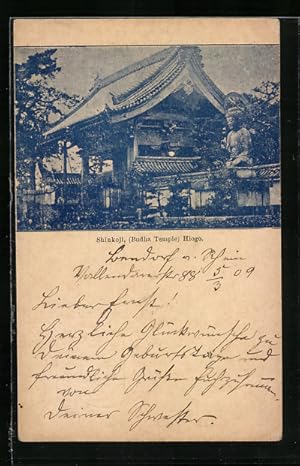 Shinkoji, (Budha Temple) Hiogo.
Bendorf a. Rhein
Vallenderstr 88 5/3 09
Lieber Ernst!
Herzliche Glückwünsche zu
Deinem Geburtstage und
freundliche Grüße
von
Deiner Schwester.